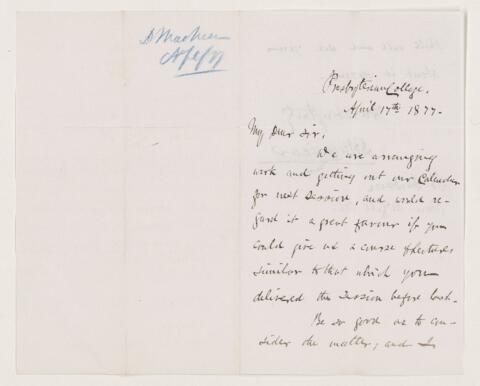 Presbyterian College.
April 17th 1877.
My Dear Sir,
We are arranging
work and getting out our Calendar
for next Session, and would re-
gard it a great favour if you
could give us a course of lectures
similar to that which you
delivered the Session before last.
Be so good as to con-
sider the matter, and I